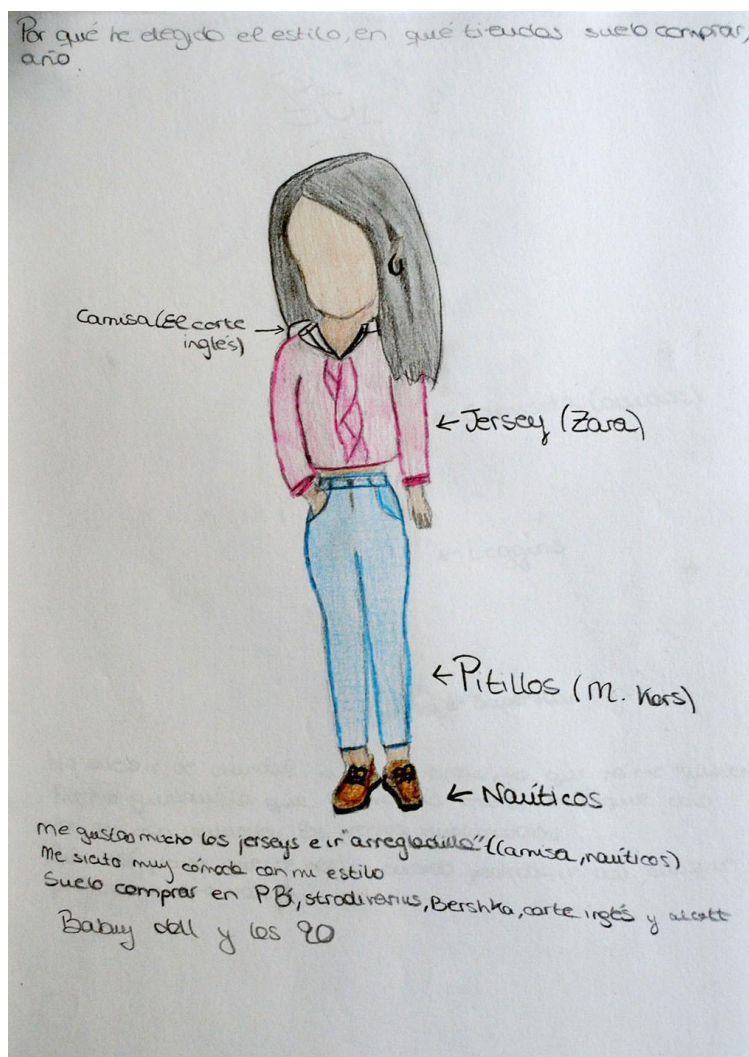 Por qué he elegido el estilo, en qué tiendas suelo comprar,
año.
Camisa (El corte
inglés)
Jersey (Zara)
Pitillos (M. Kors)
Naúticos
me gustan mucho los jerseys e ir "arregladilla" (camisa, naúticos)
Me siento muy cómoda con mi estilo
Suelo comprar en P Bi, stradivarius, Bershka, corte inglés y alcott
Babuy doll y los 90